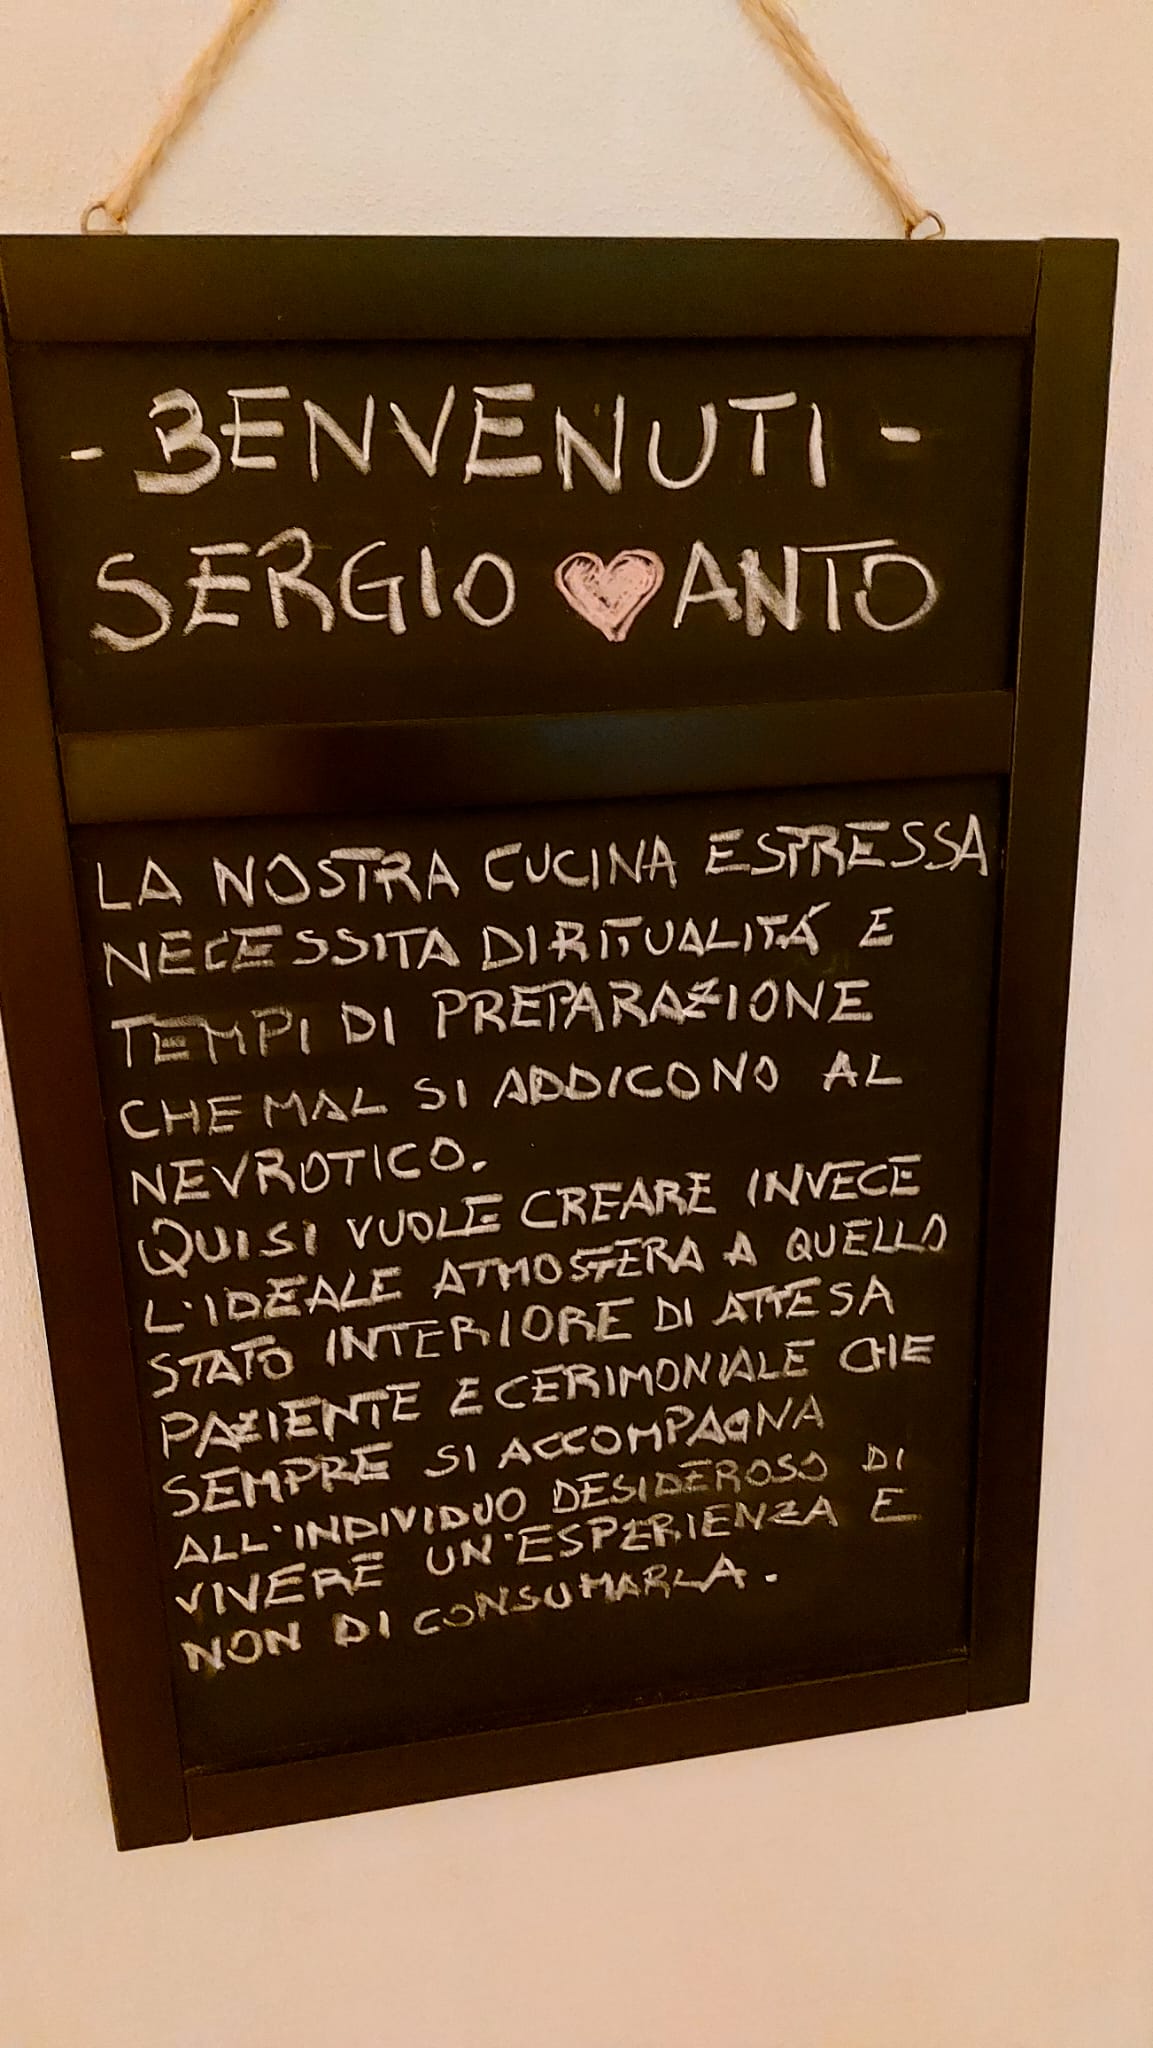 - BENVENUTI -
SERGIO ♥ ANTO
LA NOSTRA CUCINA ESPRESSA
NECESSITA DI RITUALITÁ E
TEMPI DI PREPARAZIONE
CHE MAL SI ADDICONO AL
NEVROTICO.
QUI SI VUOLE CREARE INVECE
L'IDEALE ATMOSFERA A QUELLO
STATO INTERIORE DI ATTESA
PAZIENTE E CERIMONIALE CHE
SEMPRE SI ACCOMPAGNA
ALL'INDIVIDUO DESIDEROSO DI
VIVERE UN'ESPERIENZA E
NON DI CONSUMARLA.